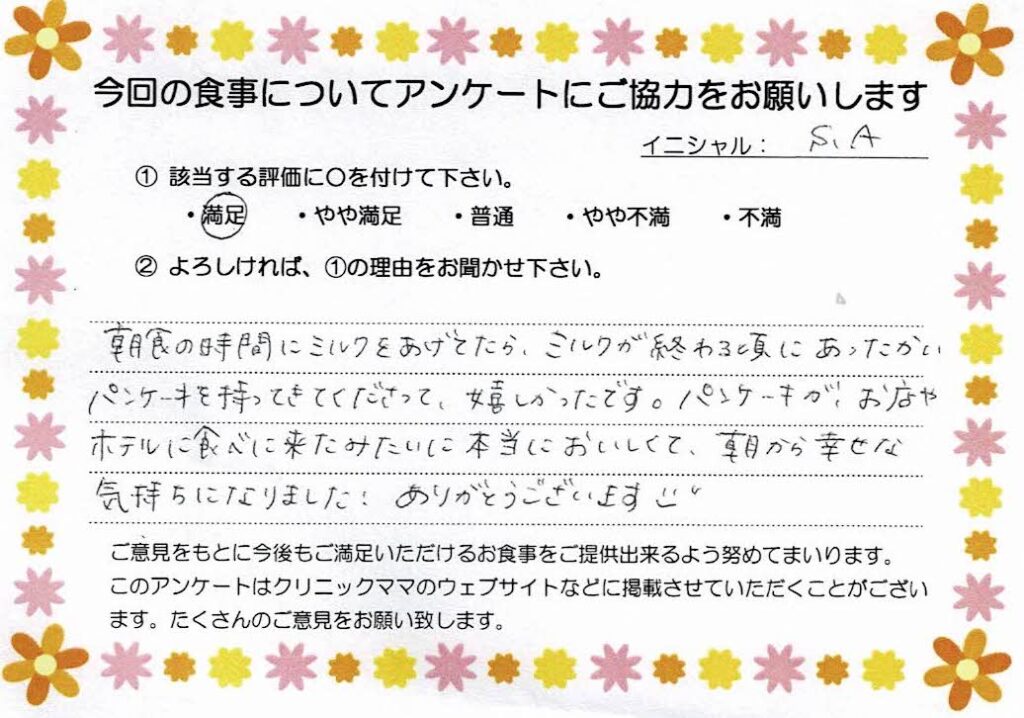 今回の食事についてアンケートにご協力をお願いします
イニシャル： S.A
① 該当する評価に〇を付けて下さい。
・満足 ・やや満足 ・普通 ・やや不満 ・不満
② よろしければ、①の理由をお聞かせ下さい。
朝食の時間にミルクをあげてたら、ミルクが終わる頃にあったかい
パンケーキを持ってきてくださって、嬉しかったです。パンケーキが、お店や
ホテルに食べに来たみたいに本当においしくて、朝から幸せな
気持ちになりました！ ありがとうございます
ご意見をもとに今後もご満足いただけるお食事をご提供出来るよう努めてまいります。
このアンケートはクリニックママのウェブサイトなどに掲載させていただくことがござい
ます。たくさんのご意見をお願い致します。